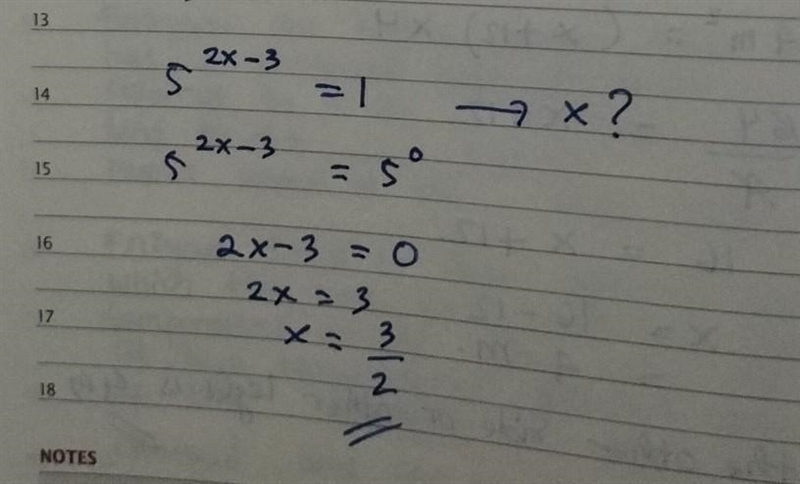 13
5^{2x-3} = 1 → x?
14
5^{2x-3} = 5^0
15
16
2x-3 = 0
2x = 3
17
x = 3/2
18
NOTES